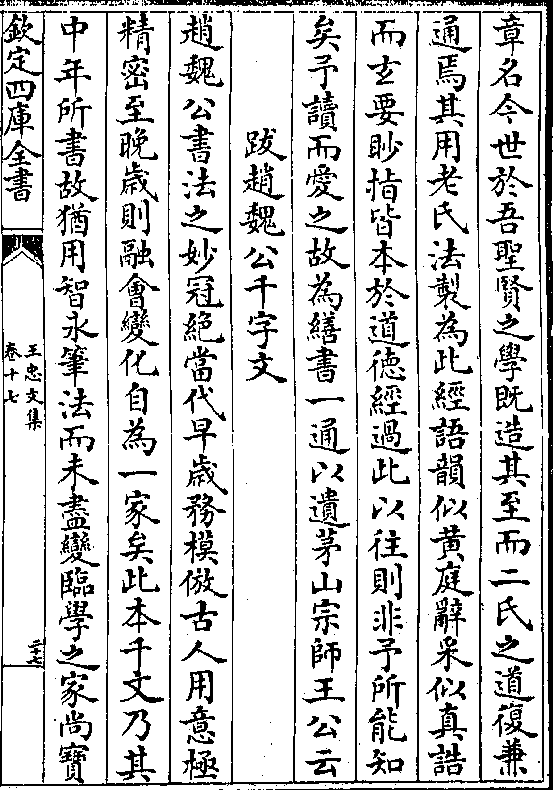 章名今世於吾聖賢之學既造其至而二氏之道復兼
通焉其用老氏法製為此經語韻似黄庭辭采似真誥
而玄要眇指皆本於道德經過此以往則非予所能知
矣予讀而愛之故為繕書一通以遺茅山宗師王公云
跋趙魏公千字文
趙魏公書法之妙冠絶當代早歲務模倣古人用意極
精密至晚歲則融會變化自為一家矣此本千文乃其
中年所書故猶用智永筆法而未盡變臨學之家尚寶
欽定四庫全書
王忠文集
卷十七
二十七